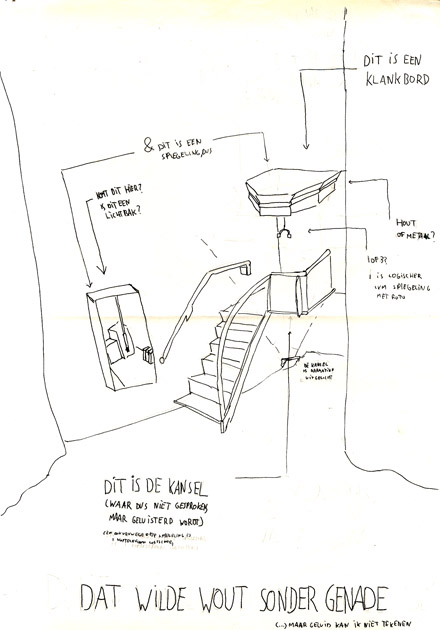 DIT IS EEN
KLANKBORD
& DIT IS EEN
SPIEGELING, DUS
KOMT DIT HIER?
IS DIT EEN
LICHTBAK?
HOUT
OF METAAL?
1 OF 3?
1 IS LOGISCHER
IVM SPIEGELING
MET FOTO
DE KANSEL
IS
UITGELICHT
DIT IS DE KANSEL
(WAAR DUS NIET GESPROKEN
MAAR GELUISTERD WORDT)
DAT WILDE WOUT SONDER GENADE
(...) MAAR GELUID KAN IK NIET TEKENEN